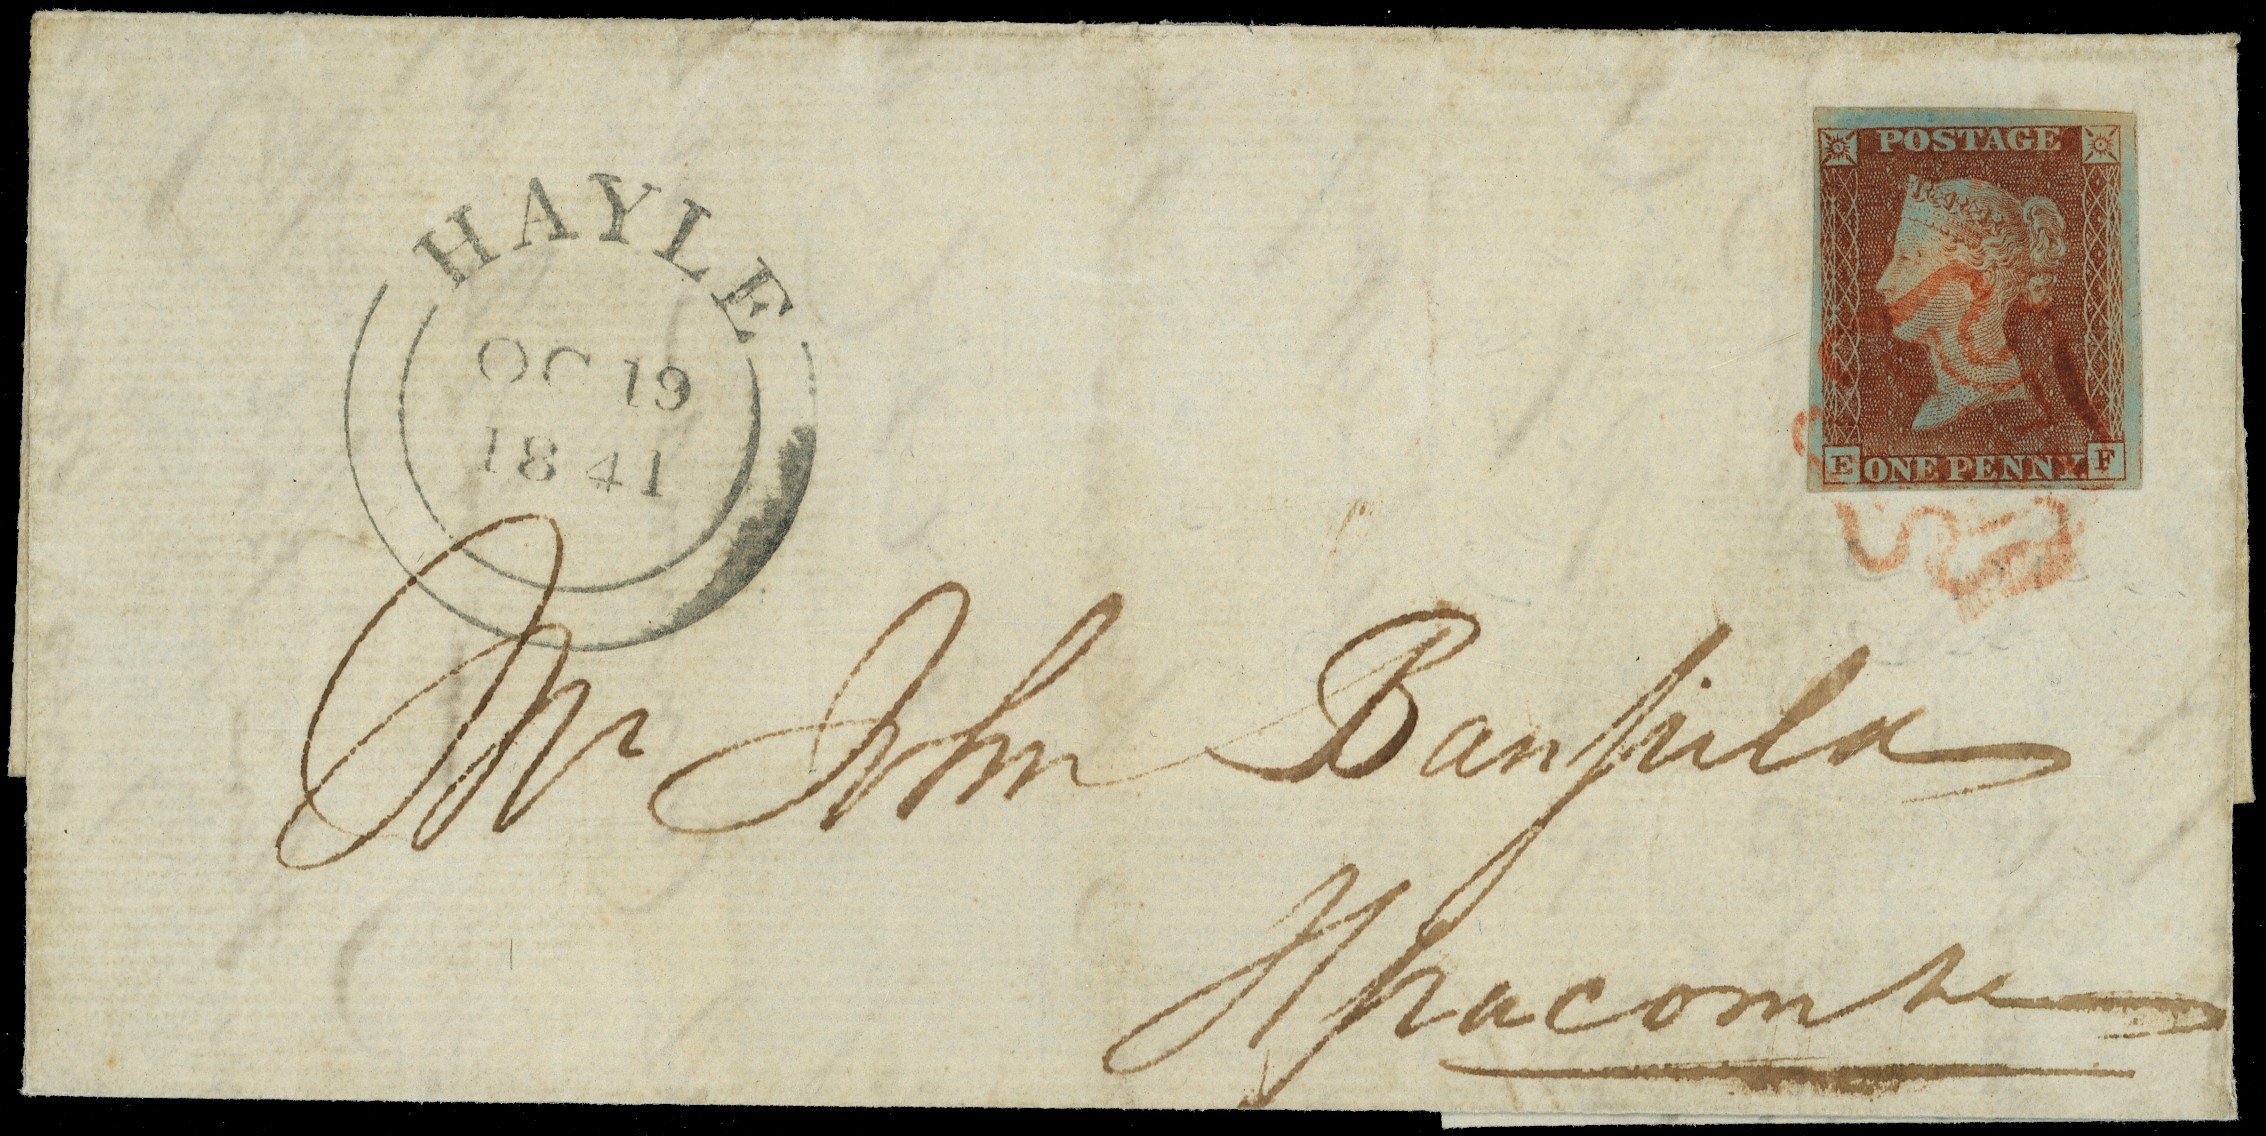 HAYLE
OC 19
1841
POSTAGE
E ONE PENNY F
Mr John Banfield
Ilfracombe